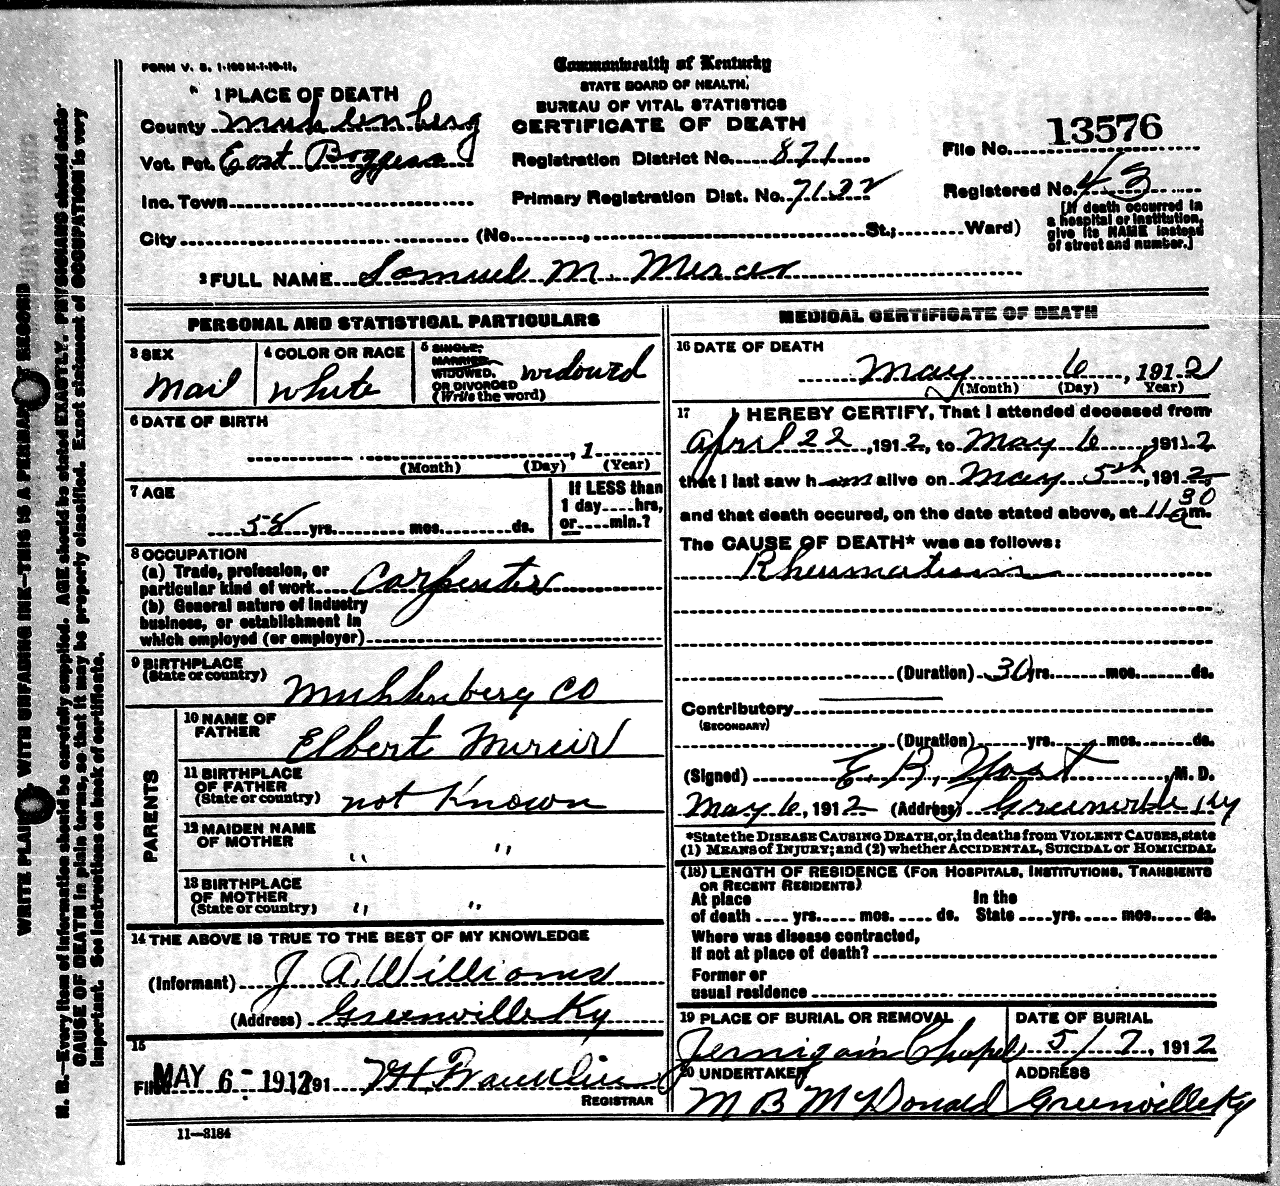 FORM V. S. 1-100M-1-10-11.
Commonwealth of Kentucky
STATE BOARD OF HEALTH,
BUREAU OF VITAL STATISTICS
CERTIFICATE OF DEATH
1 PLACE OF DEATH
County Muhlenberg
Vot. Pct. East Boggess
Inc. Town
City (No. , St.; Ward)
Registration District No. 871
Primary Registration Dist. No. 7132
File No. 13576
Registered No. 43
[If death occurred in
a hospital or institution,
give its NAME instead
of street and number.]
2 FULL NAME Samuel M. Mercer
PERSONAL AND STATISTICAL PARTICULARS
3 SEX
Mail
4 COLOR OR RACE
White
5 SINGLE,
MARRIED,
WIDOWED,
OR DIVORCED
(Write the word)
widowed
6 DATE OF BIRTH
, 1
(Month) (Day) (Year)
7 AGE
58 yrs. mos. ds.
If LESS than
1 day hrs,
or min.?
8 OCCUPATION
(a) Trade, profession, or
particular kind of work Carpenter
(b) General nature of industry
business, or establishment in
which employed (or employer)
9 BIRTHPLACE
(State or country)
Muhlenberg Co
PARENTS
10 NAME OF
FATHER
Elbert Mercer
11 BIRTHPLACE
OF FATHER
(State or country)
not Known
12 MAIDEN NAME
OF MOTHER
" "
13 BIRTHPLACE
OF MOTHER
(State or country)
" "
14 THE ABOVE IS TRUE TO THE BEST OF MY KNOWLEDGE
(Informant) J A. Williams
(Address) Greenville Ky
15
Filed MAY 6 - 1912, 191
Franklin
REGISTRAR
11—3184
MEDICAL CERTIFICATE OF DEATH
16 DATE OF DEATH
May 6, 1912
(Month) (Day) (Year)
17 I HEREBY CERTIFY, That I attended deceased from
April 22, 1912, to May 6, 1912
that I last saw him alive on May 5th, 1912
and that death occured, on the date stated above, at 11 30 a m.
The CAUSE OF DEATH* was as follows:
Rheumatism
(Duration) 30 yrs. mos. ds.
Contributory
(SECONDARY)
(Duration) yrs. mos. ds.
(Signed) E. B. Yost, M. D.
May 6, 1912 (Address) Greenville Ky
*State the DISEASE CAUSING DEATH, or, in deaths from VIOLENT CAUSES, state
(1) MEANS of INJURY; and (2) whether ACCIDENTAL, SUICIDAL or HOMICIDAL
(18) LENGTH OF RESIDENCE (FOR HOSPITALS, INSTITUTIONS, TRANSIENTS
OR RECENT RESIDENTS)
At place In the
of death yrs. mos. ds. State yrs. mos. ds.
Where was disease contracted,
if not at place of death?
Former or
usual residence
19 PLACE OF BURIAL OR REMOVAL
Jernigain Chapel
DATE OF BURIAL
5/7, 1912
20 UNDERTAKER
M B McDonald
ADDRESS
Greenville Ky
WRITE PLAINLY, WITH UNFADING INK—THIS IS A PERMANENT RECORD
N. B.—Every item of information should be carefully supplied. AGE should be stated EXACTLY. PHYSICIANS should state
CAUSE OF DEATH in plain terms, so that it may be properly classified. Exact statement of OCCUPATION is very
important. See instructions on back of certificate.